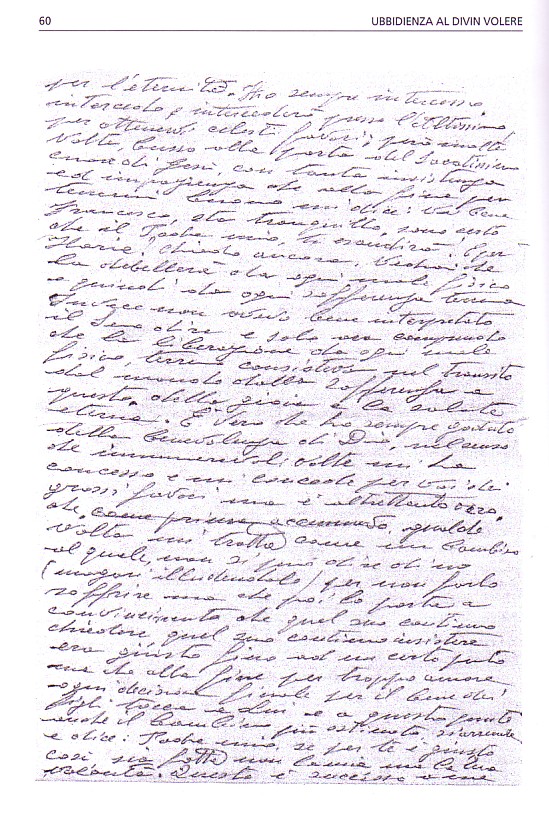 60 UBBIDIENZA AL DIVIN VOLERE
per l'eternità. Ho sempre intercesso
intercedo e intercederò presso l'Altissimo
per ottenervi celesti favori, però molte
volte, busso alla porta del Sacratissimo
cuore di Gesù, con tanta insistenza
ed impazienza che alla fine per
tenermi buono mi dice: va bene
Francesco, sta tranquillo, sono certo
che il Padre mio, ti esaudirà! E per
Maria? Chiedo ancora. Vedrai che
La debellerà da ogni male fisico
e quindi da ogni sofferenza terrena
Invece non avevo bene interpretato
il Suo dire e solo ora comprendo
che la liberazione da ogni male
fisico, terreno consisteva nel transito
dal mondo della sofferenza a
questo della gioia e la salute
eterna. È vero che ho sempre goduto
della benevolenza di Dio, nel senso
che innumerevoli volte mi ha
concesso e mi concede per voi dei
grossi favori ma è altrettanto vero
che, come prima accennavo, qualche
volta mi tratta come un bambino
al quale, non si può dire di no
(magari illudendolo) per non farlo
soffrire ma che poi lo porta a
convincimento che quel suo continuo
chiedere quel suo continuo insistere
era giusto fino ad un certo punto
ma che alla fine per troppo amore
ogni decisione finale per il bene dei
figli tocca a Lui e a questo punto
anche il bambino più ostinato, s'arrende
e dice: Padre mio, se per te è giusto
così sia fatta non la mia ma la tua
volontà. Questo è successo a me